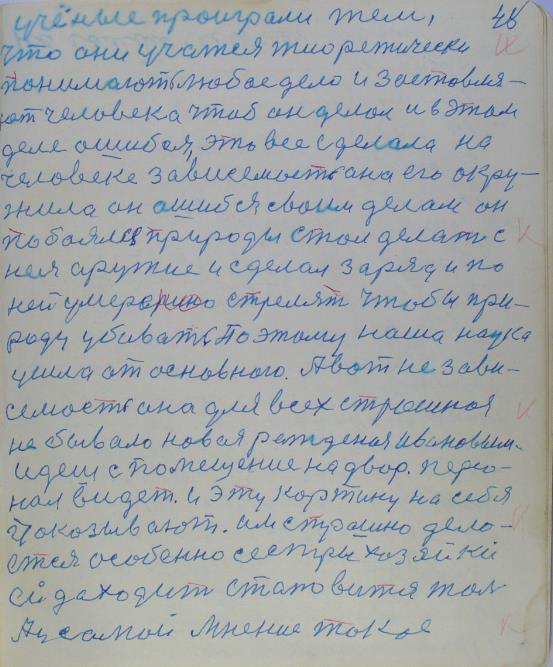 учёные проиграли тем, 48
что они учатся тиоретически
понимают любое дело и застовля-
ют человека чтоб он делол и в этом
деле ошибся, это все сделала на
человеке зависемость она его окру-
жила он ошибся своим делам он
побоялся природы стол делать с
нея аружие и сделал заряд и по
ней умерон стрелят чтобы при-
роду убивать. Поэтому наша наука
ушла от основного. А вот не зави-
семость она для всех строшная
не бывало новая режденая Ивановым.
идеш с помещение на двор. персо-
нал видет. и эту картину на себя
показывают. им строшно дело-
ется особенно сестры хозяйки
ей даходит становится там
А у самой мнение токое